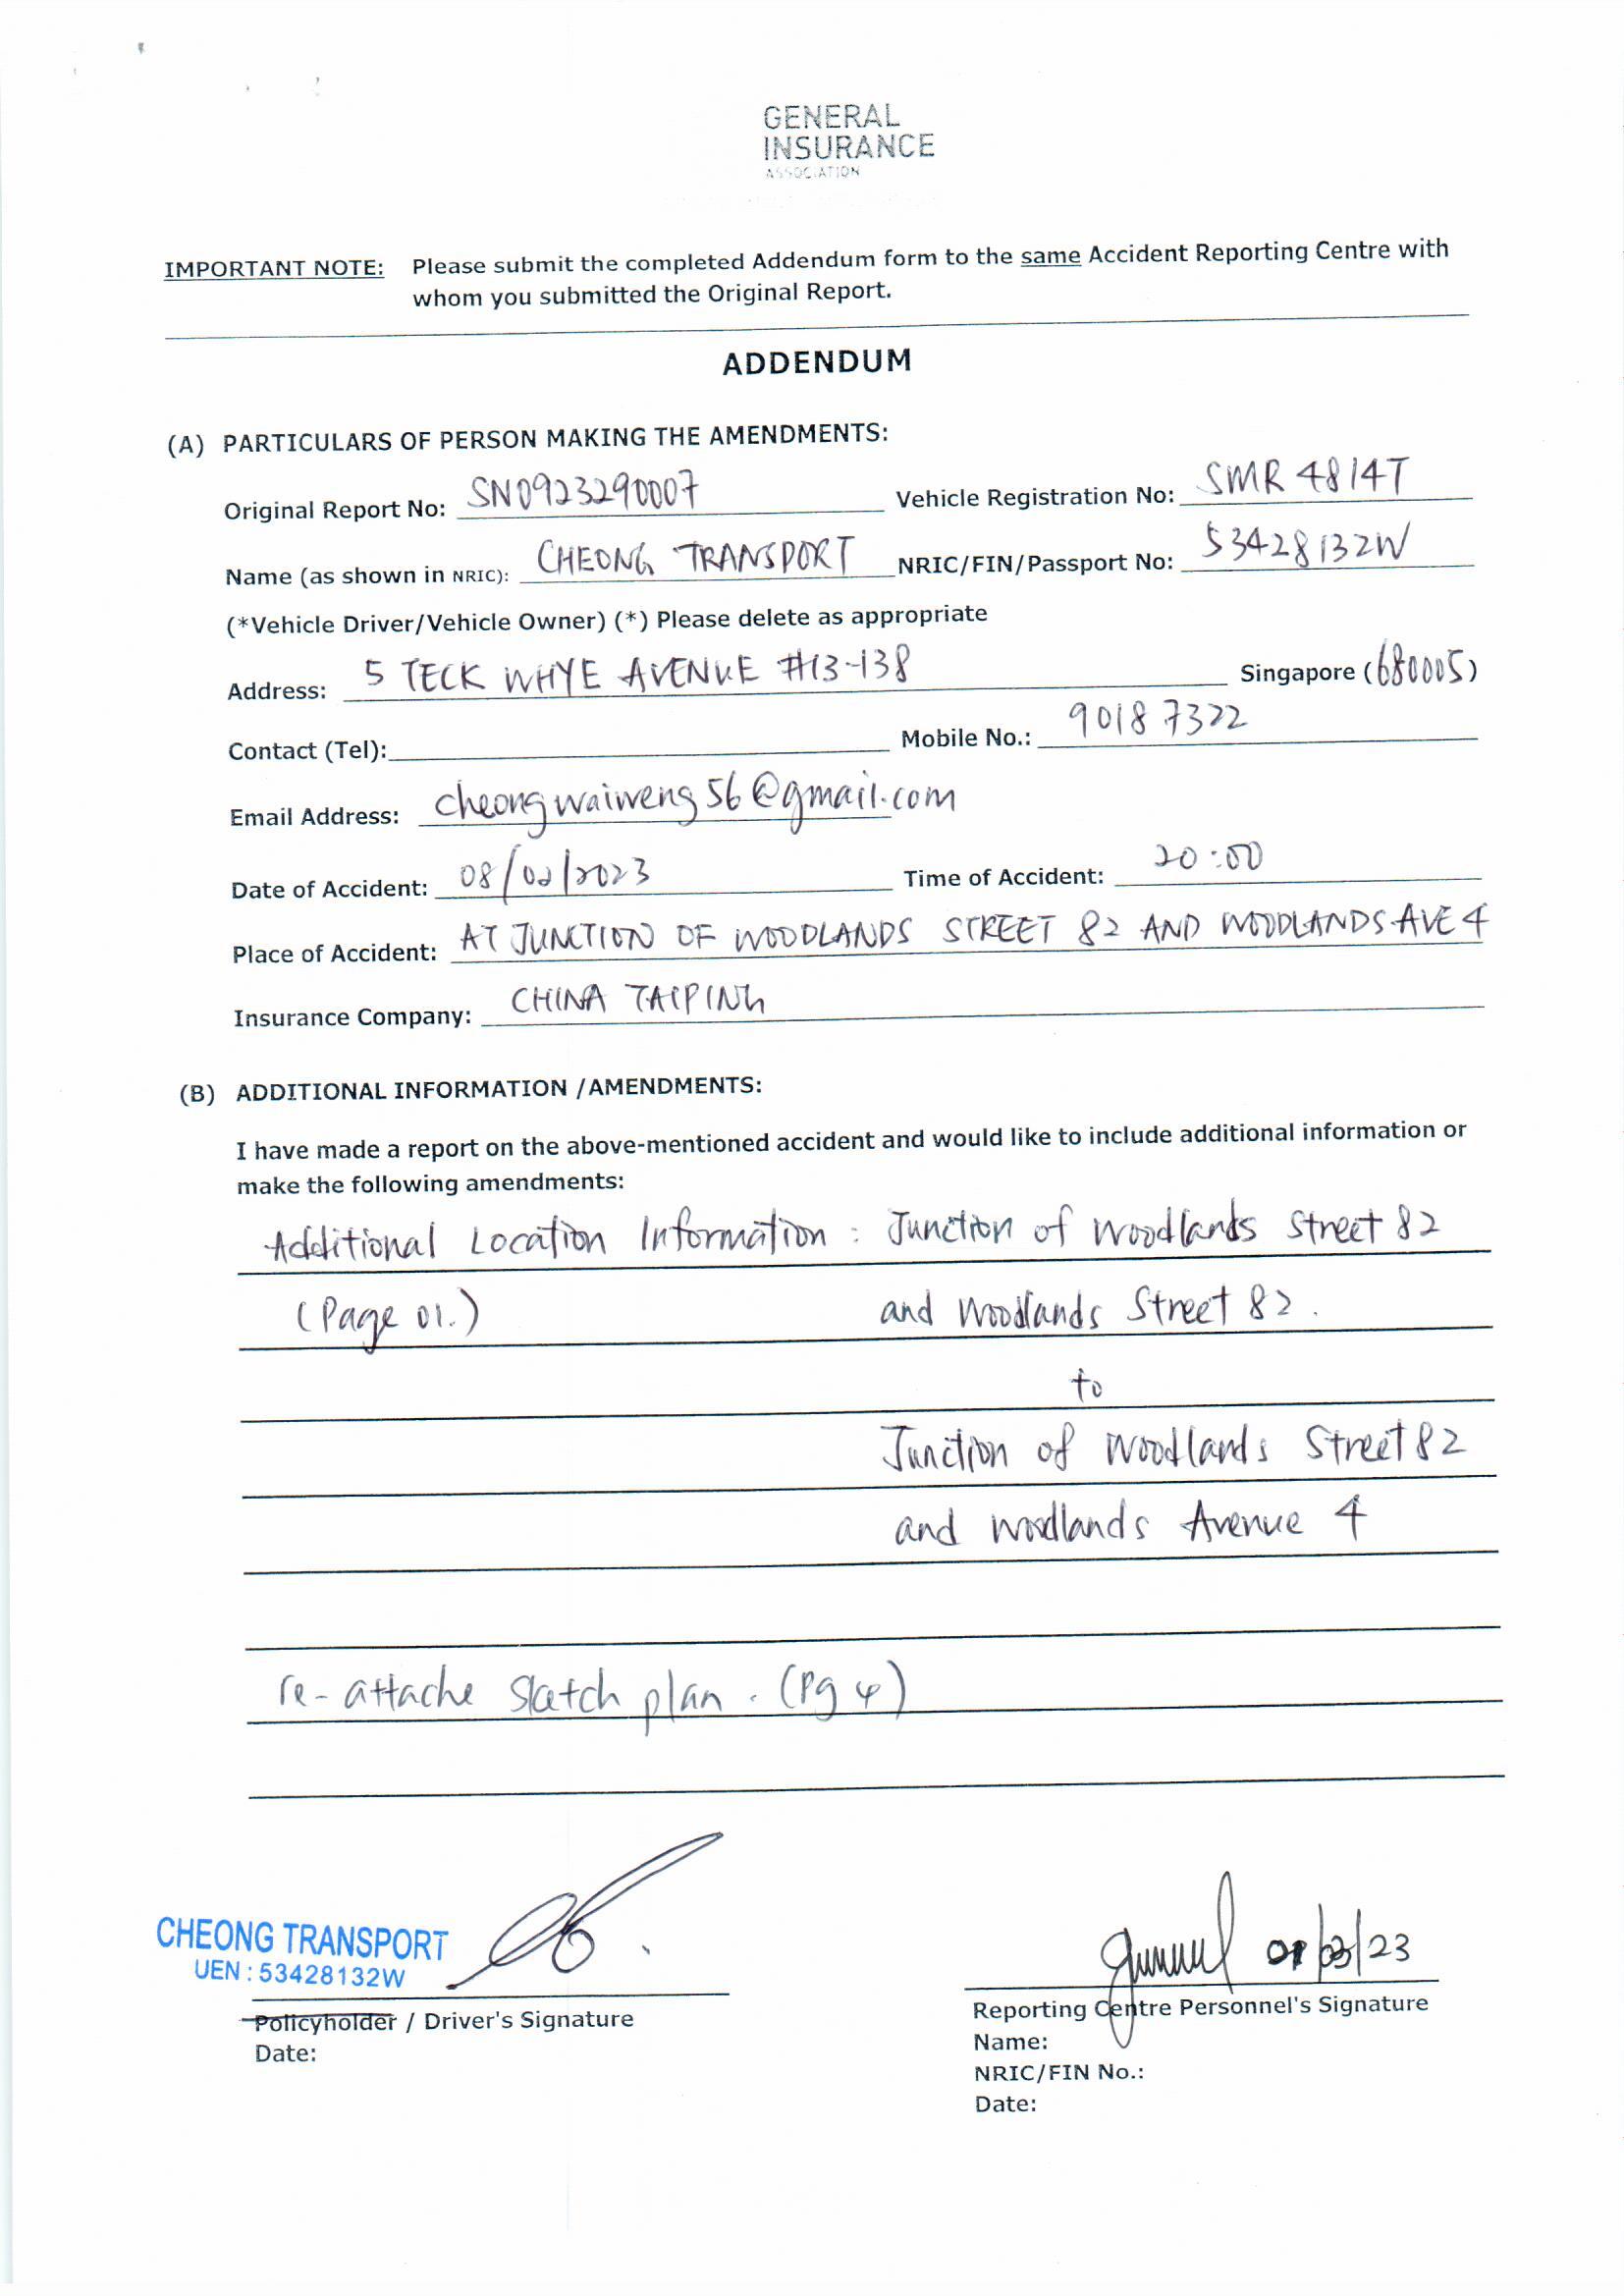 GENERAL
INSURANCE
ASSOCIATION
IMPORTANT NOTE: Please submit the completed Addendum form to the same Accident Reporting Centre with
whom you submitted the Original Report.
ADDENDUM
(A) PARTICULARS OF PERSON MAKING THE AMENDMENTS:
Original Report No: SN0923290007 Vehicle Registration No: SMR 4814T
Name (as shown in NRIC): CHEONG TRANSPORT NRIC/FIN/Passport No: 53428132W
(*Vehicle Driver/Vehicle Owner) (*) Please delete as appropriate
Address: 5 TECK WHYE AVENUE #13-138 Singapore (680005)
Contact (Tel): Mobile No.: 9018 7322
Email Address: cheongwaiweng56@gmail.com
Date of Accident: 08/02/2023 Time of Accident: 20:00
Place of Accident: AT JUNCTION OF WOODLANDS STREET 82 AND WOODLANDS AVE 4
Insurance Company: CHINA TAIPING
(B) ADDITIONAL INFORMATION /AMENDMENTS:
I have made a report on the above-mentioned accident and would like to include additional information or
make the following amendments:
Additional Location Information : Junction of Woodlands Street 82
(Page 01.) and Woodlands Street 82.
to
Junction of Woodlands Street 82
and Woodlands Avenue 4
re-attache sketch plan. (Pg 4)
CHEONG TRANSPORT
UEN : 53428132W
03/23
Policyholder / Driver's Signature Reporting Centre Personnel's Signature
Date: Name:
NRIC/FIN No.:
Date: